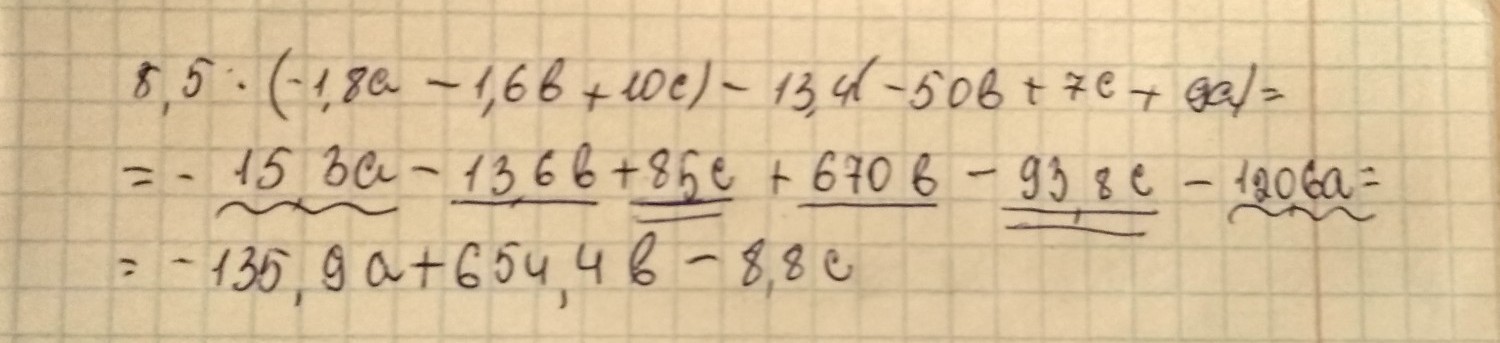 8,5 · (-1,8a - 1,6в + 10c) - 13,4(-50в + 7c + 9a) =
= - 15,3a - 13,6в + 85c + 670в - 93,8c - 120,6a =
= - 135,9a + 654,4в - 8,8c